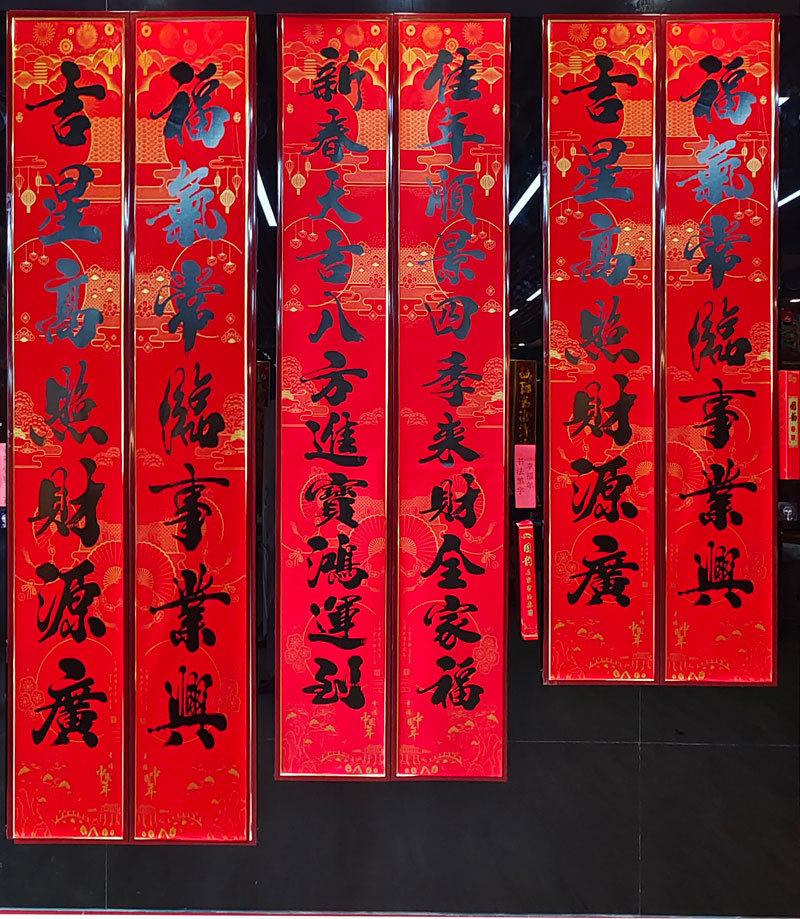 福氣常臨事業興
吉星高照財源廣
佳年順景四季來財全家福
新春大吉八方進寶鴻運到
福氣常臨事業興
吉星高照財源廣
幸福年
书法黑字